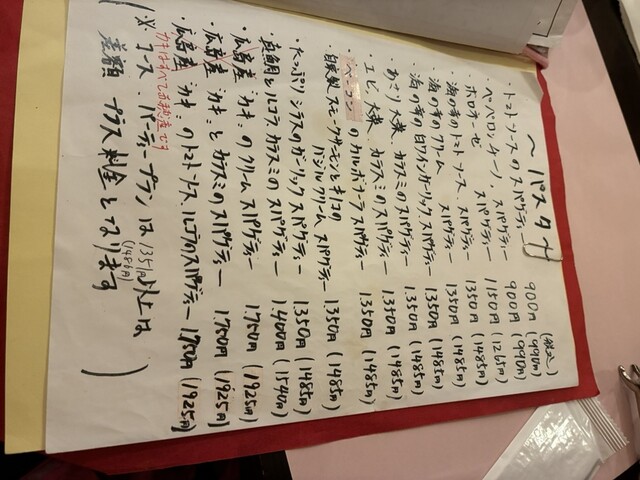 〜パスタ〜
(税込)
・トマトソースのスパゲティー 900円 (990円)
・ペペロンチーノ・スパゲティー 900円 (990円)
・ボロネーゼ スパゲティー 1150円 (1265円)
・海の幸のトマトソース、スパゲティー 1350円 (1485円)
・海の幸のクリーム スパゲティー 1350円 (1485円)
・海の幸の白ワインガーリック、スパゲティー 1350円 (1485円)
・あさり、大葉、カラスミのスパゲティー 1.350円 (1485円)
・エビ、大葉、カラスミのスパゲティー 1.350円 (1485円)
・ベーコンのカルボナーラスパゲティー 1.350円 (1485円)
・自家製スモークサーモンとキノコの
バジルクリーム スパゲティー 1.350円 (1485円)
・たっぷりシラスのガーリックスパゲティー 1.350円 (1485円)
・真鯛とルコラ、カラスミのスパゲティー 1.400円 (1540円)
・広島産 カキのクリームスパゲティー 1.750円 (1925円)
・広島産 カキとカラスミのスパゲティー 1.750円 (1925円)
・広島産 カキのトマトソース、ルコラのスパゲティー 1.750円 (1925円)
カキはすべて産です
(※ コース、パーティープランは 1351円以上は
(1486円)
差額 プラス料金となります )